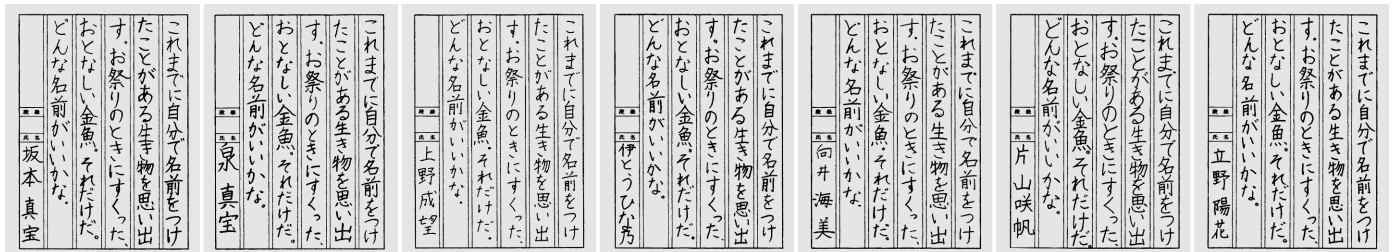 これまでに自分で名前をつけ
たことがある生き物を思い出
す。お祭りのときにすくった、
おとなしい金魚。それだけだ。
どんな名前がいいかな。
段級
氏名
坂本真宝
これまでに自分で名前をつけ
たことがある生き物を思い出
す。お祭りのときにすくった、
おとなしい金魚。それだけだ。
どんな名前がいいかな。
段級
氏名
泉真宝
これまでに自分で名前をつけ
たことがある生き物を思い出
す。お祭りのときにすくった、
おとなしい金魚。それだけだ。
どんな名前がいいかな。
段級
氏名
上野成望
これまでに自分で名前をつけ
たことがある生き物を思い出
す。お祭りのときにすくった、
おとなしい金魚。それだけだ。
どんな名前がいいかな。
段級
氏名
伊とうひな乃
これまでに自分で名前をつけ
たことがある生き物を思い出
す。お祭りのときにすくった、
おとなしい金魚。それだけだ。
どんな名前がいいかな。
段級
氏名
向井海美
これまでに自分で名前をつけ
たことがある生き物を思い出
す。お祭りのときにすくった、
おとなしい金魚。それだけだ。
どんな名前がいいかな。
段級
氏名
片山咲帆
これまでに自分で名前をつけ
たことがある生き物を思い出
す。お祭りのときにすくった、
おとなしい金魚。それだけだ。
どんな名前がいいかな。
段級
氏名
立野陽花